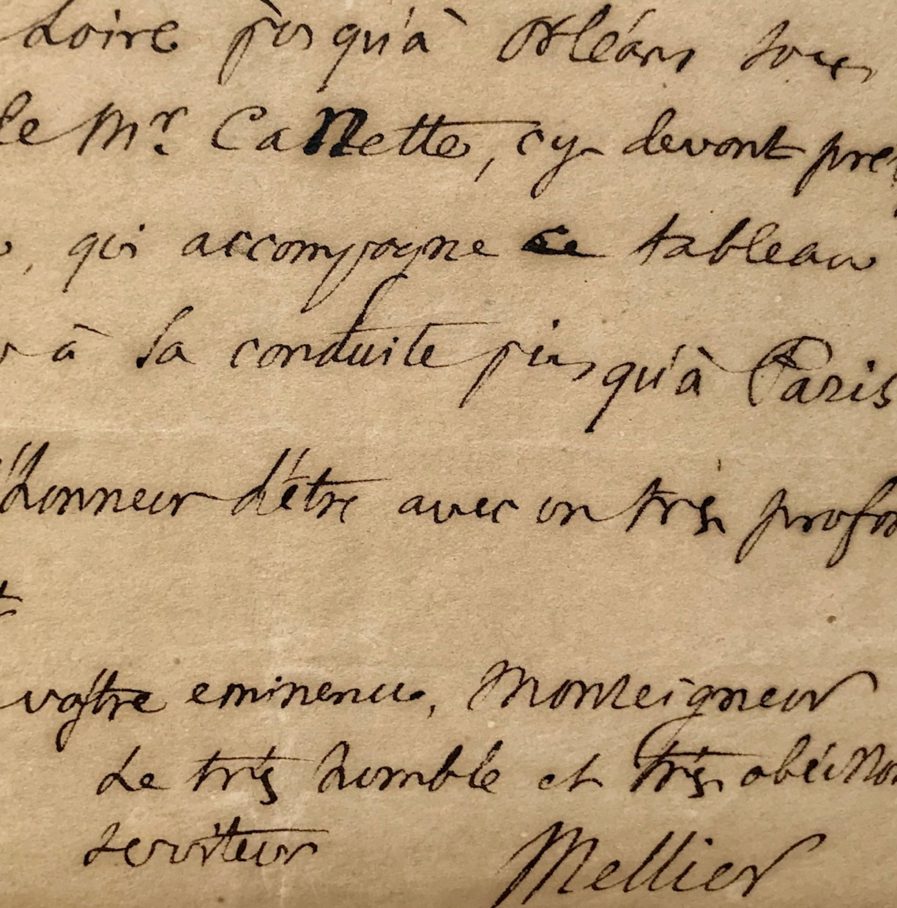 Loire jusqu'à Orléans sous
le Mr. Canette, cy devant pre
, qui accompagne ce tableau
à sa conduite jusqu'à Paris
l'honneur d'être avec un très profon
t
vostre eminence, Monseigneur
Le très humble et très obéissan
serviteur Mellier